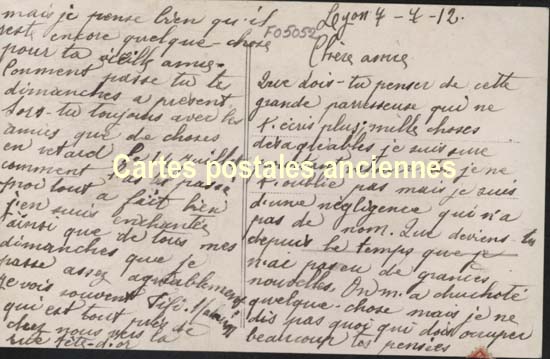 Lyon 7-7-12.
F05052
Chère amie
Que dois-tu penser de cette
grande paresseuse qui ne
t'écris plus, mille choses
désagréables je suis sure
je ne
t'oublie pas mais je suis
d'une négligence qui n'a
pas de nom. Que deviens-tu
depuis le temps que je
n'ai pas eu de grandes
nouvelles. On m'a chuchoté
quelque-chose mais je ne
dis pas quoi qui dois occuper
beaucoup tes pensées
mais je pense bien qu'il
reste encore quelque-chose
pour ta vieille amie.
Comment passe tu tes
dimanches a présent
Sors-tu toujours avec les
amies que de choses
en retard
comment passé
moi tout a fait bien
j'en suis enchantée
ainsi que de tous mes
dimanches que je
passe assez agréablement
je vois souvent Fifi
qui est tout près de
chez nous vers la
rue Tête-d'or
Cartes postales anciennes